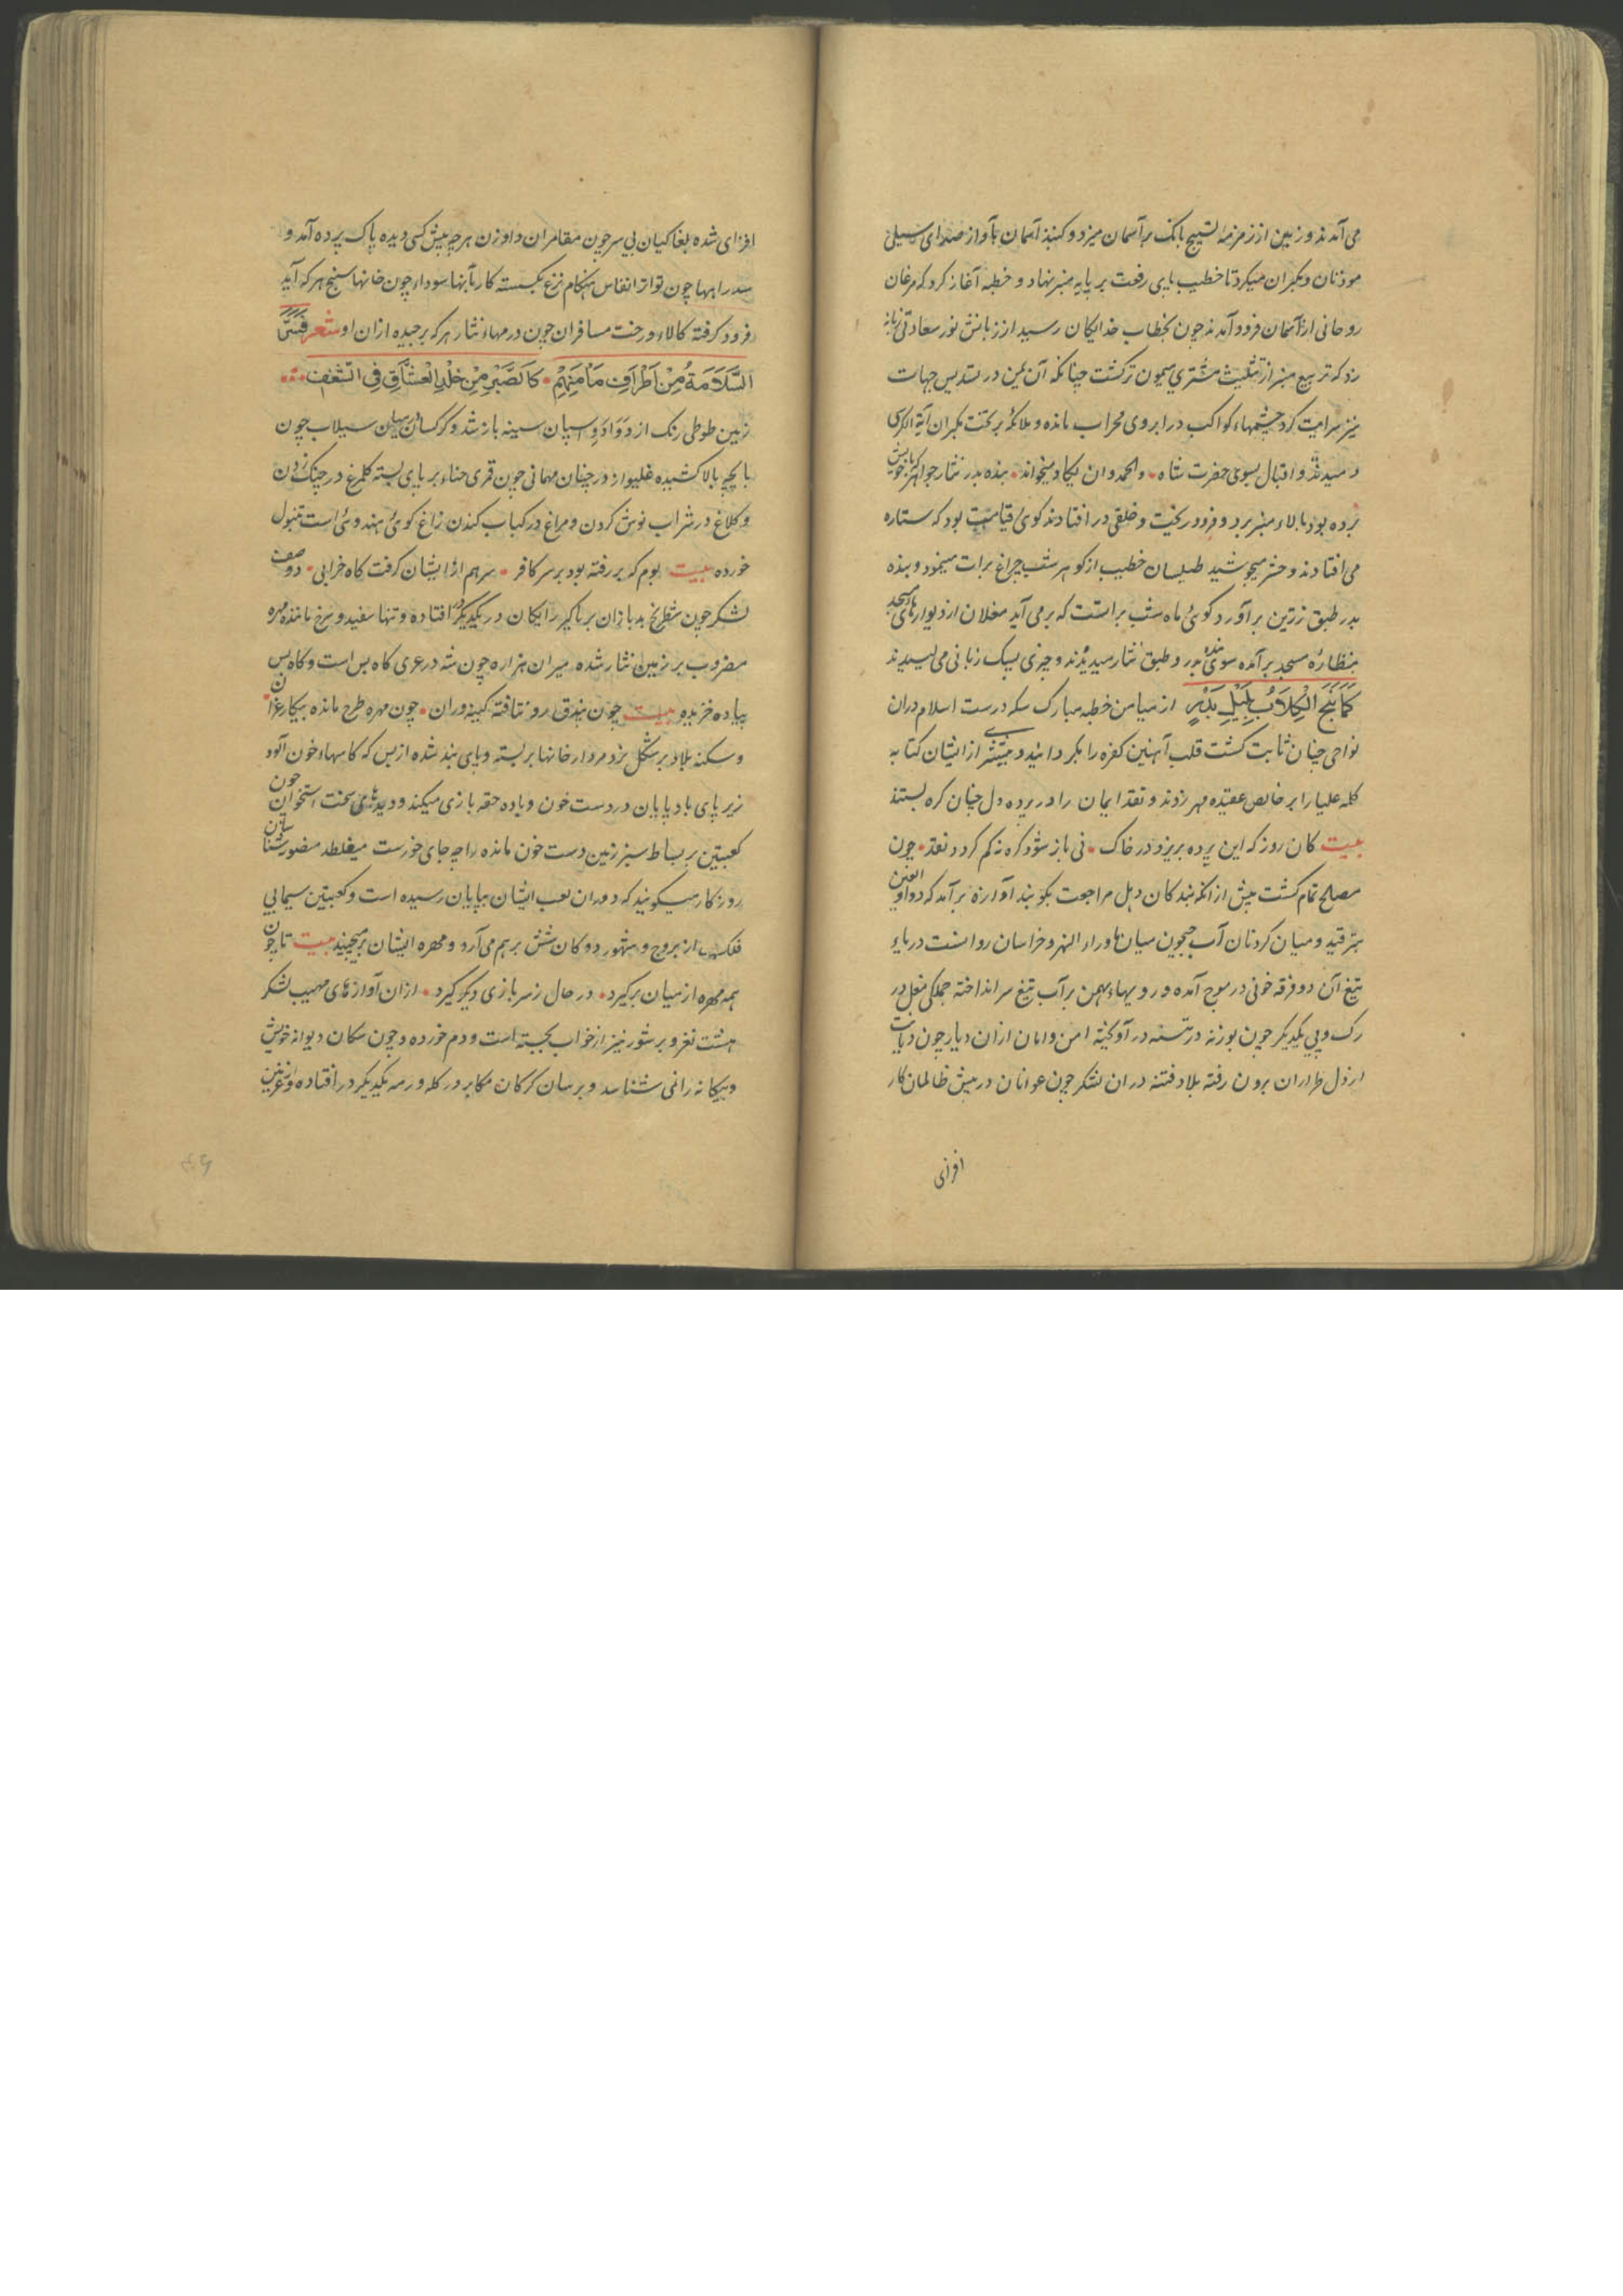 می آمدند و زمین از زمزمه تسبیح بانک بر آسمان میزد و کنبذ آسمان بآواز صدای سیلی
موذنان و مکبران میکرد تا خطیب پای رفعت بر پایه منبر نهاد و خطبه آغاز کرد که مرغان
روحانی از آسمان فرود آمدند چون بخطاب خدایکان رسید از زبانش نور سعادتی زبانه
زد که تربیع منبر از تثلیث مشتری میمون تر کشت چنانکه آن یمن در تسدیس جهات
نیز سرایت کرد چشمهاء کواکب در ابروی محراب مانده و ملائکه بر تخت مکبران آیة الکرسی
میدمیدند و اقبال بسوی حضرت شاه والحمد وان یکاد میخواند بنده بدر نثار جواهر که با خویش
برده بود بالاء منبر برد و فرود ریخت و خلقی در افتادند کوئی قیامت بود که ستاره
می افتادند و حشر میجوشید طیلسان خطیب از کوهر شب چراغ برات مینمود و بنده
بدر طبق زرین بر آورد کوئی ماه شب براتست که برمی آید مغلان از دیوارهای مسجد
بنظاره مسجد بر آمده سوی بنده بدر و طبق نثار میدیدند و چیزی بسبک زبانی می لیسیدند
کما ینبح الکلاب بلیل بدر از میامن خطبه مبارک سکه درست اسلام در ان
نواحی چنان ثابت کشت قلب آهنین کفره را بکردانید و بیشتر از ایشان کتابه
کلمه علیا را بر خالص عقیده مهر زدند و نقد ایمان را در پرده دل چنان کره بستند
بیت کان روز که این پرده بریزد در خاک نی باز شود کره نه کم کردد نقد چون
مصلح تمام کشت پیش از انکه بندکان دهل مراجعت بکوبند آوازه بر آمد که دوا و الغنن
بترقید و میان کردنان آب جیحون میان ماوراء النهر و خراسان روانست دریاء
تیغ آن دو فرقه خونی در موج آمده و رویهاء بهمن بر آب تیغ سر انداخته جملکی مغل در
رک و پی یکدیکر چون بوزنه در تسمه در آویخته امن و امان ازان دیار چون دیانت
از دل طراران برون رفته بلاد فتنه دران لشکر چون عوانان در پیش ظالمان کار
افزای
افزای شده بغاکیان بی سر چون مقامران داوزن هرچه پیش کسی دیده پاک برده آمد و
سد راهها چون تواتر انفاس هنکام نزع بکسسته کاربانها سوداء چون خانها سپنج هر که آید
فرود کرفته کالاء و رخت مسافران چون درمهاء نثار هر که برچیده ازان او شعر فتی
السلامة من اطراف مأمنهم کالصبر من خلد العشاق فی الشغف
زمین طوطی رنک از دوادو اسپان سینه باز شد و کرکسان بسان سیلاب چون
پاچه بالا کشیده غلیواز در چنان مهمانی چون قمری حناء بر پای بسته کلمرغ در چنک زدن
و کلاغ در شراب نوش کردن و مراغ در کباب کندن زاغ کوئی هندوئی است تنبول
خورده بیت بوم که بر رفته بود بر سر کافر سر هم از ایشان کرفت کاه خرابی دو صف
لشکر چون شطرنج بدبازان بر ناکیر رایکان در یکدیکر افتاده و تنها سفید و سرخ مانند مهره
مضروب بر زمین نثار شده میران هزاره چون شه در عری کاه بس است و کاه پس
پیاده خزیده بیت چون بیدق رو نتافته کینه وران چون مهره طرح مانده بیکار غزان
و سکنه بلاد بر شکل نرد مردار خانها بر بسته و پای بند شده از بس که کامهاء خون آلود
زیر پای باد پایان در دست خون و پاده حقه بازی میکند و دیدهای سخت استخوان چون
کعبتین بر بساط سبز زمین دست خون مانده راچه جای خورست میغلطد منصوبه شناسان
روزکار میکویند که دوران لعب ایشان بپایان رسیده است و کعبتین سیمابی
فلک از بروج و شهور دوکان شش برهم می آرد و مهره ایشان برمیچیند بیت تا چون
همه مهره از میان برکیرد در حال ز سر بازی دیکر کیرد ازان آوازهای مهیب لشکر
هشت نغر و برشور نیز از خواب بجسته است و دم خورده و چون سکان دیوانه خویش
و بیکانه را نمی شناسد و برسان کرکان مکابر در کله و رمه یکدیکر در افتاده و غزنین